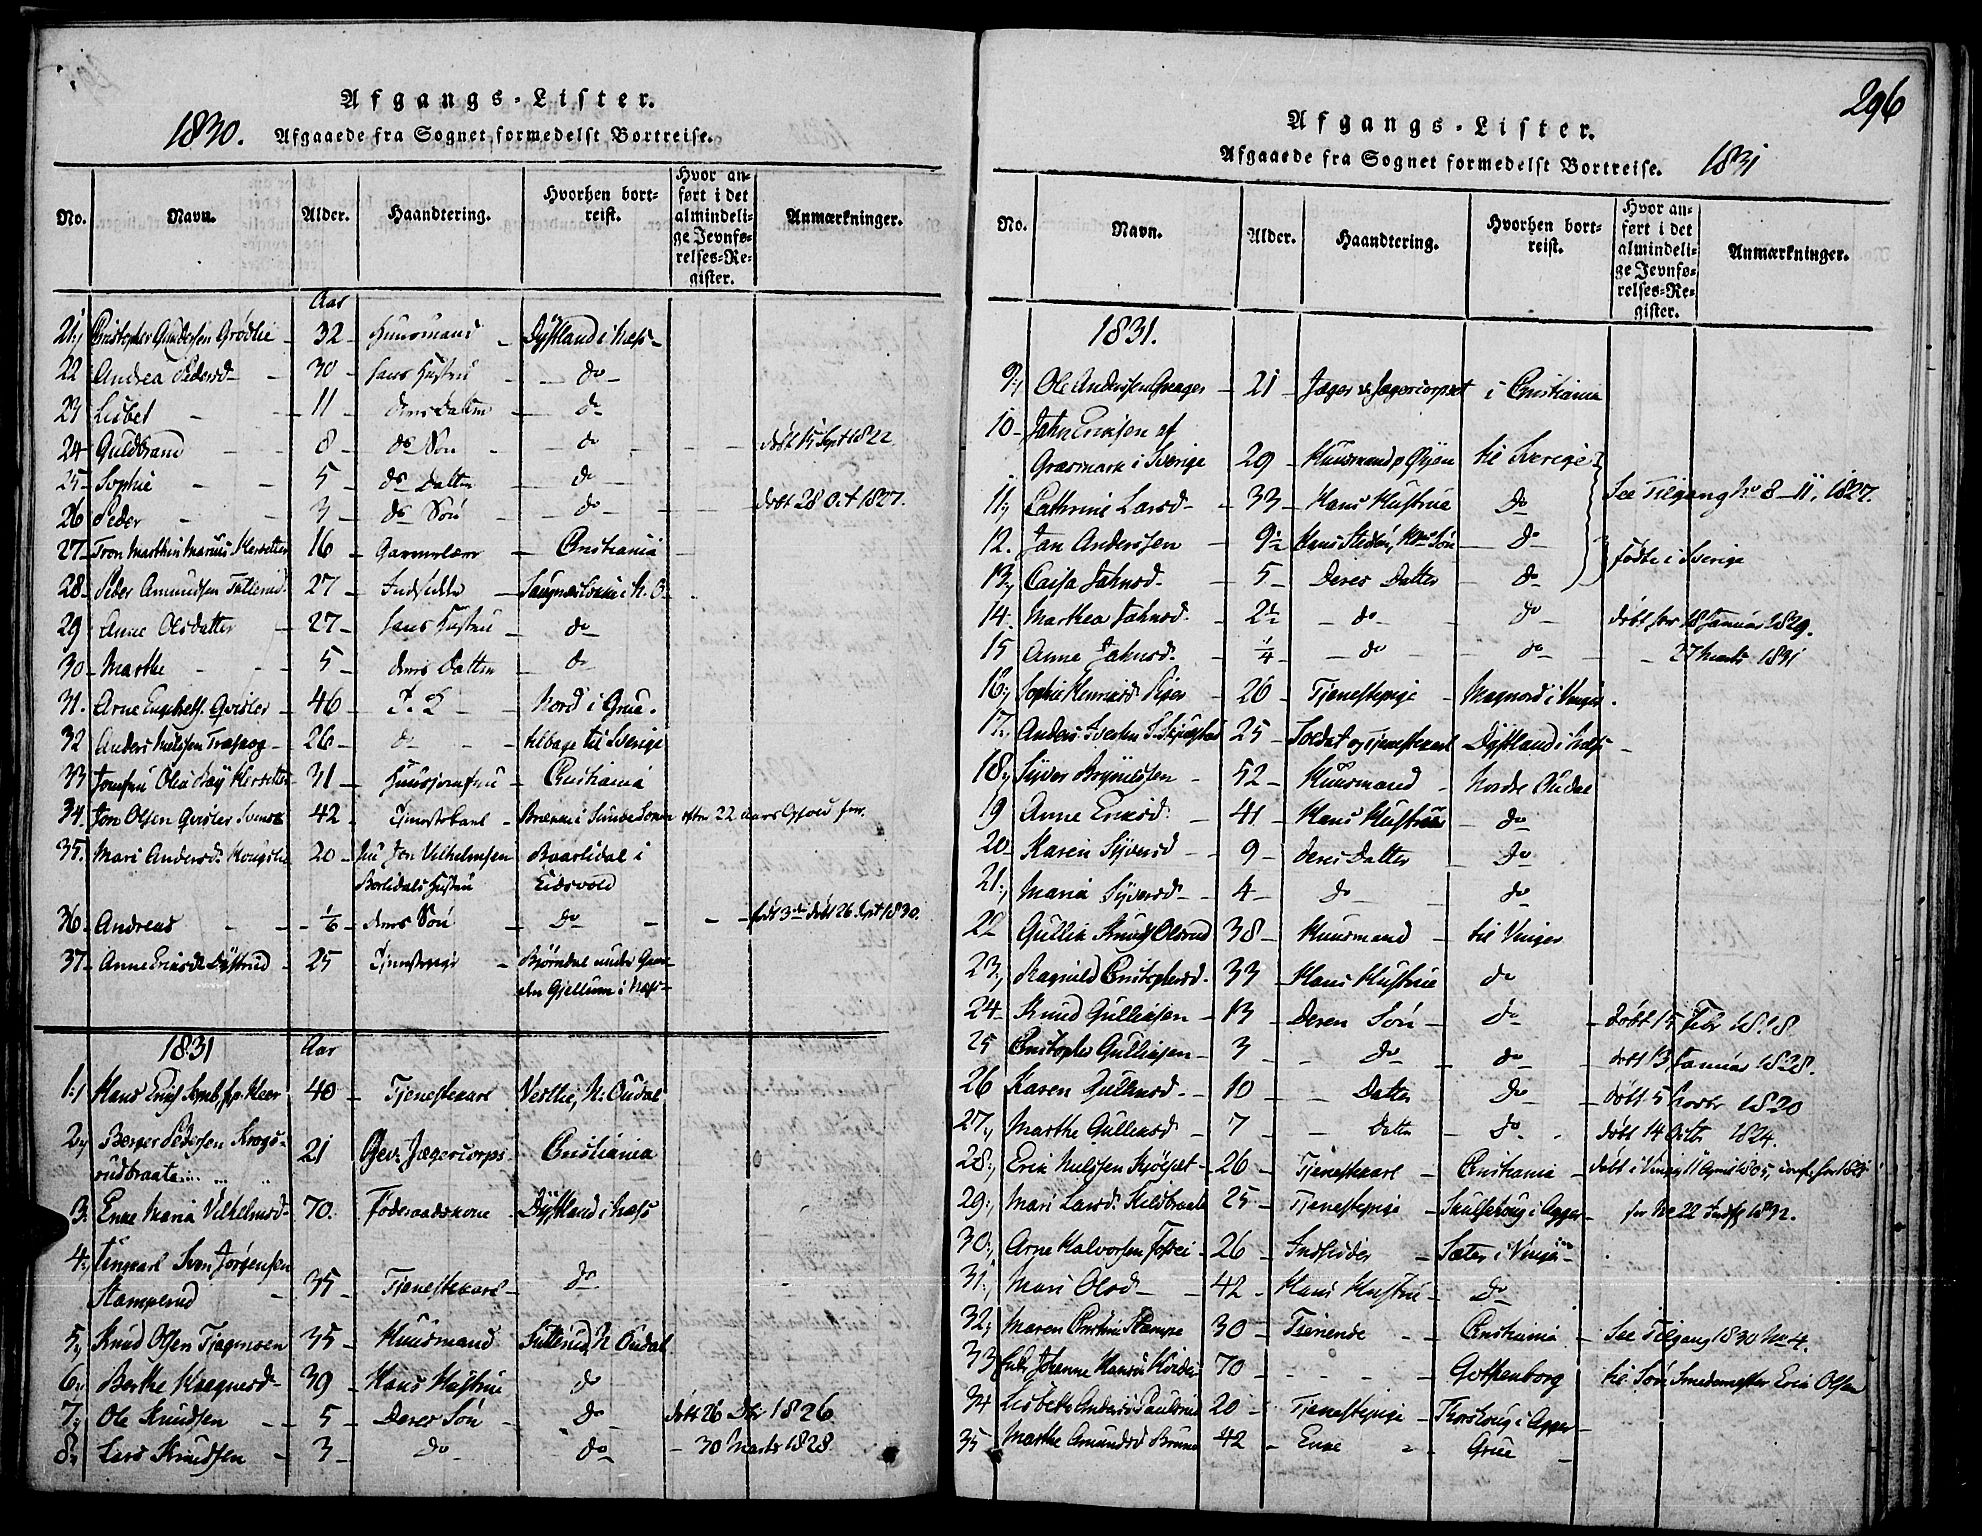 Afgangs-Lister.
1830. Afgaaede fra Sognet formedelst Bortreise.
No. Navn. Alder. Haandtering. Hvorhen bortreist. Hvor anført i det almindelige Jevnførelses-Register. Anmærkninger.
Aar
21, Christopher Gundersen Grødlie 32 Huusmand Dystland i Næs
22 Andrea Pedersd 30 hans Hustru do
23 Lisbet 11 deres Datter do
24 Guldbrand 8 do Søn do døbt 15 Sept 1822
25 Sophie 5 do Datter do
26 Peder 3 do Søn do døbt 28 Oct 1827.
27 Marthin Marius 16 Christiania
28 Peder Amundsen 27 Indsidder i N. O.
29 Anne Olsdatter 27 hans Hustru do
30 Marthe 5 deres Datter do
31. Arne Engebrets. Qvisler 46 Nord i Grue.
32 Anders Nilssen 26 do tilbage til Sverige
33 Jomfru Olea 31 Huusjomfru Christiania
34. Jon Olsen Qvisler 42 Tjenestekarl efter 22 aars Ophold her.
35. Mari Andersd. Kongslie 20 Jon Vilhelmsen Baarlidal i
Borlidals Hustru Eidsvold
36 Andreas 1/6 deres Søn do født 3de døbt 26 Sept 1830.
37 Anne Eriksd. Dystrud 25 Tjenestepige Bjørndal under Gaarden Gjellum i Næs
1831 Aar
1, Hans 40 Tjenestekarl N. Oudal
2, Berger Pedersen Krogsrudbraata 21 Gev. Jægercorps Christiania
3. Enke Maria Vilhelmsd 70. Føderaadskone Dystland i Næs
4, Ungkarl Sven Jørgensen
Stamperud 35 Tjenestekarl do
5, Knud Olsen Tjagmoen 35 Huusmand N. Oudal
6, Berthe Kragnesd 39 Hans Hustrue do
7, Ole Knudsen 5 Deres Søn do døbt 26 Dbr 1826
8, Lars Knudsen 3 do do 30 Marts 1828
296
Afgangs-Lister.
Afgaaede fra Sognet formedelst Bortreise. 1831
No. Navn. Alder. Haandtering. Hvorhen bortreist. Hvor anført i det almindelige Jevnførelses-Register. Anmærkninger.
1831.
9, Ole Anderssen 21 Jæger v. Jægercorpset i Christiania
10 Jahn Eriksen af
Græsmark i Sverige 29 Huusmand p Øyen til Sverige
11, Cathrine Larsd 33 Hans Hustrue do See Tilgang No 8-11, 1827.
12. Jan Anderssen 9 1/2 Hans Stedsøn, Søn do
13, Caisa Jahnsd. 5 Deres Datter do fødte i Sverige
14. Marthea Jahnsd. 2 1/2 do do døbt her 18 Januar 1829.
15 Anne Jahnsd. 1/4 do do 27 Marts 1831
16, Sophie Henriksd 26 Tjenestepige Magnord i Vinger
17. Anders Iversen 25 Soldat og Tjenestekarl Dystland i Næs
18, Syver Brynildsen 52 Huusmand Nordre Oudal
19 Anne Eriksd. 41 Hans Hustrue do
20 Karen Syversd 9 deres Datter do
21, Maria Syversd 4 do do
22 Gullik Knuds Olsrud 38 Huusmand til Vinger
23, Ragnild Christophersd. 33 Hans Hustrue do
24 Knud Gulliksen 13 Deres Søn do døbt 15 Febr 1818
25 Christopher Gulliksen 3 do do døbt 13 Januar 1828.
26 Karen Gulliksd. 10 Datter do døbt 5 Novbr 1820
27, Marthe Gulliksd 7 Datter do døbt 14 Octbr 1824.
28, Erik Nielssen 26 Tjenestekarl Christiania døbt i Vinger 11 April 1805,
29, Mari Larsd. 25 Tjenestepige i Agger for No 22 Indf 1832.
30, Arne Halvorsen 26 Indsidder Sæter i Vinger
31, Mari Olsd 42 Hans Hustrue do
32, Maren Christine Stampe 30 Tjenende Christiania See Tilgang 1830 No 4.
33 Enke Johanne Hansd 70 Gothenborg til Søn Smedemester Erik Olsen
34 Lisbeth Andersd 20 Tjenestepige i Agger
35 Marthe Amundsd 42 Enke Grue